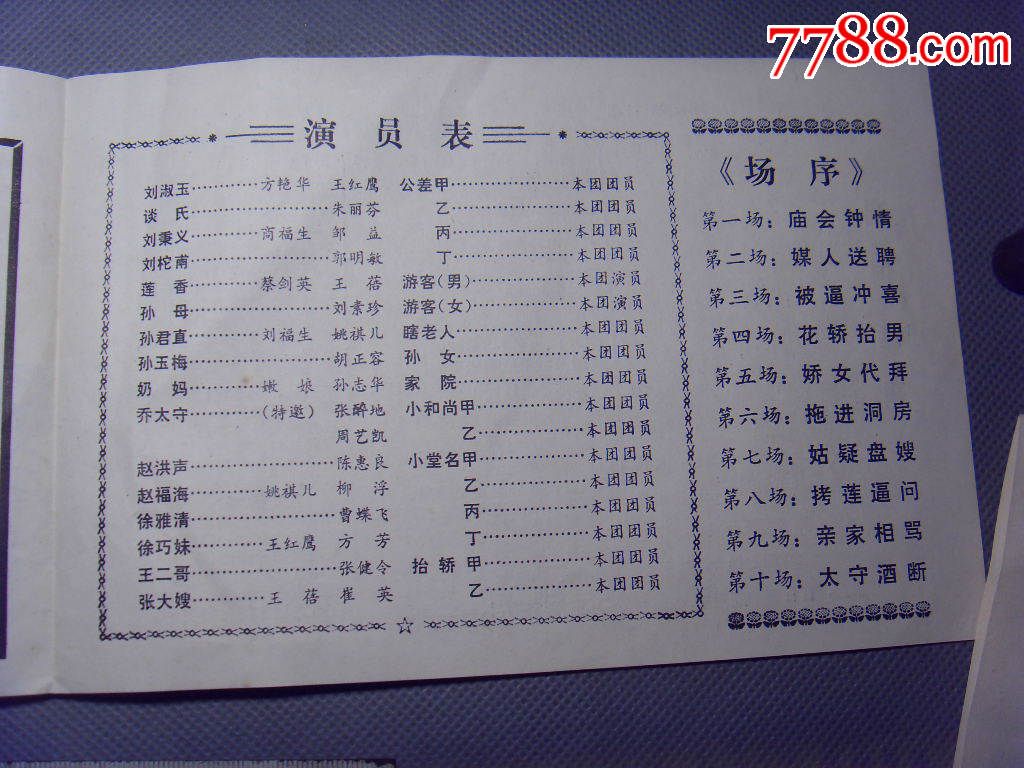 7788.com
演员表
刘淑玉…………方艳华 王红鹰
谈氏……………………朱丽芬
刘秉义…………商福生 邹益
刘柁甫……………………郭明敏
莲香…………蔡剑英 王蓓
孙母……………………刘素珍
孙君直…………刘福生 姚祺儿
孙玉梅……………………胡正容
奶妈…………嫩娘 孙志华
乔太守…………(特邀) 张醉地
周艺凯
赵洪声……………………陈惠良
赵福海…………姚祺儿 柳浮
徐雅清……………………曹蝶飞
徐巧妹…………王红鹰 方芳
王二哥……………………张健令
张大嫂…………王蓓 崔英
公差甲…………………本团团员
乙…………………本团团员
丙…………………本团团员
丁…………………本团团员
游客(男)…………………本团演员
游客(女)…………………本团演员
瞎老人…………………本团团员
孙女…………………本团团员
家院…………………本团团员
小和尚甲…………………本团团员
乙…………………本团团员
小堂名甲…………………本团团员
乙…………………本团团员
丙…………………本团团员
丁…………………本团团员
抬轿甲…………………本团团员
乙…………………本团团员
《场序》
第一场：庙会钟情
第二场：媒人送聘
第三场：被逼冲喜
第四场：花轿抬男
第五场：娇女代拜
第六场：拖进洞房
第七场：姑疑盘嫂
第八场：拷莲逼问
第九场：亲家相骂
第十场：太守酒断